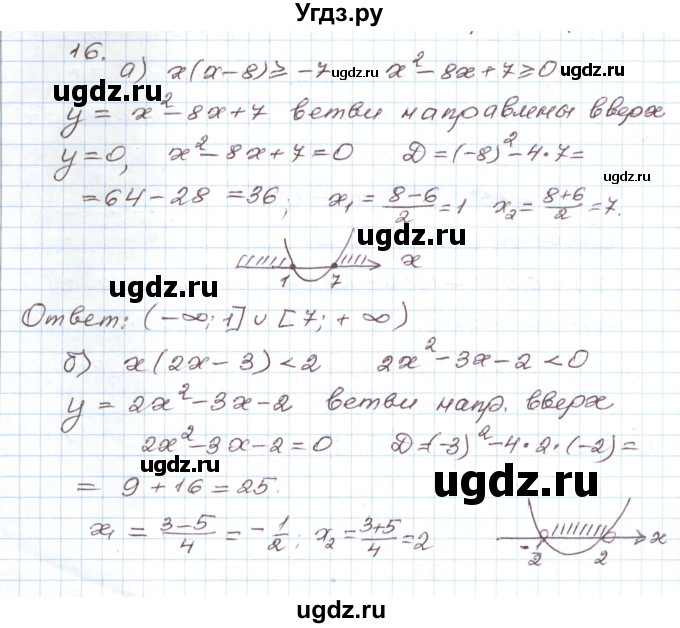 Угдз.ру
16.
а) x(x-8) ≥ -7 ugdz.ru x²-8x+7 ≥ 0 ugdz.ru
ugdz.ru
y = x²-8x+7 ветви направлены вверх
y=0, x²-8x+7=0 D=(-8)²-4·7=
ugdz.ru
=64-28=36; x₁ = (8-6)/2 = 1 x₂ = (8+6)/2 = 7.
ugdz.ru
ugdz.ru
1 7 x
ugdz.ru
Ответ: (-∞; 1] ∪ [7; +∞)
б) x(2x-3) < 2 2x²-3x-2 < 0
y = 2x²-3x-2 ветви напр. вверх
ugdz.ru
2x²-3x-2=0 D=(-3)²-4·2·(-2)=
ugdz.ru
= 9+16=25.
ugdz.ru
x₁ = (3-5)/4 = -1/2; x₂ = (3+5)/4 = 2
-1/2 2 x
ugdz.ru
ugdz.ru